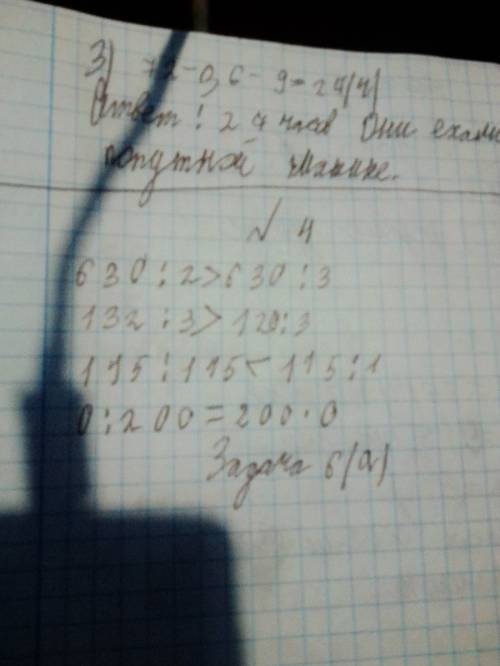 3) 72-0,6-9=24(ч)
Ответ: 24 часов они ехали
попутной машине.
№ 4
630:2>630:3
132:3>120:3
115:115<115:1
0:200=200·0
Задача 6(а)